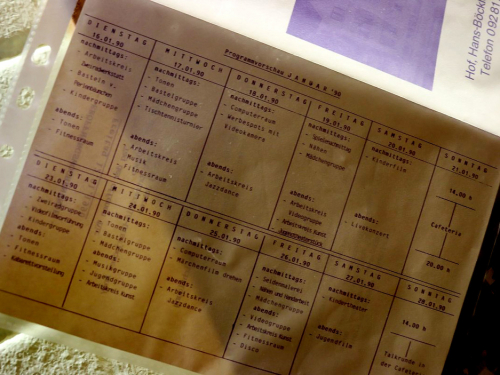 Hof, Hans-Böckl
Telefon 09281
Programmvorschau JANUAR '90
DIENSTAG
16.01.90
nachmittags:
- Arbeitskreis
Zweiradwerkstatt
- Basteln v.
- Kindergruppe
abends:
- Tonen
- Fitnessraum
MITTWOCH
17.01.90
nachmittags:
- Tonen
- Bastelgruppe
- Mädchengruppe
- Tischtennisturnier
abends:
- Arbeitskreis
Musik
- Fitnessraum
DONNERSTAG
18.01.90
nachmittags:
- Computerraum
- Werbespots mit
Videokamera
abends:
- Arbeitskreis
- Jazzdance
FREITAG
19.01.90
nachmittags:
- Spielenachmittag
- Nähen
- Mädchengruppe
abends:
- Arbeitskreis
- Videogruppe
- Arbeitskreis Kunst
SAMSTAG
20.01.90
nachmittags:
- Kinderfilm
abends:
- Livekonzert
SONNTAG
21.01.90
14.00 h
Cafeteria
20.00 h
DIENSTAG
23.01.90
nachmittags:
- Zweiradgruppe
- Videofilmvorführung
- Kindergruppe
abends:
- Tonen
- Fitnessraum
MITTWOCH
24.01.90
nachmittags:
- Tonen
- Bastelgruppe
- Mädchengruppe
abends:
- Musikgruppe
- Jugendgruppe
- Arbeitskreis Kunst
DONNERSTAG
25.01.90
nachmittags:
- Computerraum
- Märchenfilm drehen
abends:
- Arbeitskreis
- Jazzdance
FREITAG
26.01.90
nachmittags:
- Seidenmalerei
- Nähen und Handarbeit
- Mädchengruppe
abends:
- Videogruppe
- Arbeitskreis Kunst
- Fitnessraum
- Disco
SAMSTAG
27.01.90
nachmittags:
- Kindertheater
abends:
- Jugendfilm
SONNTAG
28.01.90
14.00 h
Talkrunde in
der Cafeteria